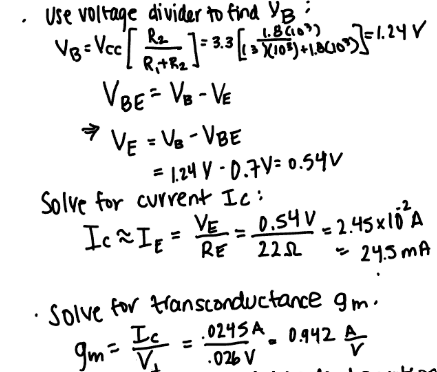 · Use voltage divider to find V_B:
V_B = Vcc [R2 / (R1+R2)] = 3.3 [1.8(10³) / (3 X(10³)+1.8(10³))] = 1.24 V
V_BE = V_B - V_E
⇒ V_E = V_B - V_BE
= 1.24 V - 0.7V = 0.54V
Solve for current Ic:
Ic ≈ I_E = V_E / RE = 0.54 V / 22Ω = 2.45x10⁻² A
= 24.5 mA
· Solve for transconductance gm.
gm = Ic / Vt = .0245A / .026 V = 0.942 A/V